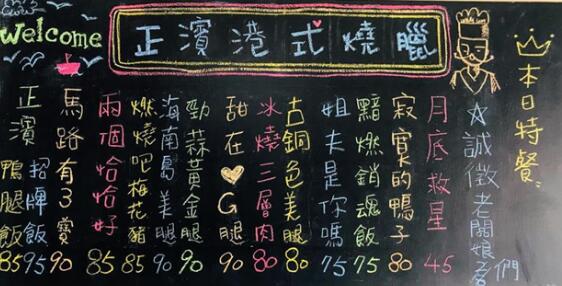 Welcome
正濱港式燒臘
本日特餐
☆誠徵老闆娘們
月底救星 45
寂寞的鴨子 80
黯燃銷魂飯 75
姐夫是你嗎 75
古銅色美腿 80
冰燒三層肉 80
甜在♡G腿 90
勁蒜黃金腿 90
海南島美腿 90
燃燒吧梅花豬 85
兩個恰恰好 85
馬路有3寶 90
招牌飯 95
正濱鴨腿飯 85